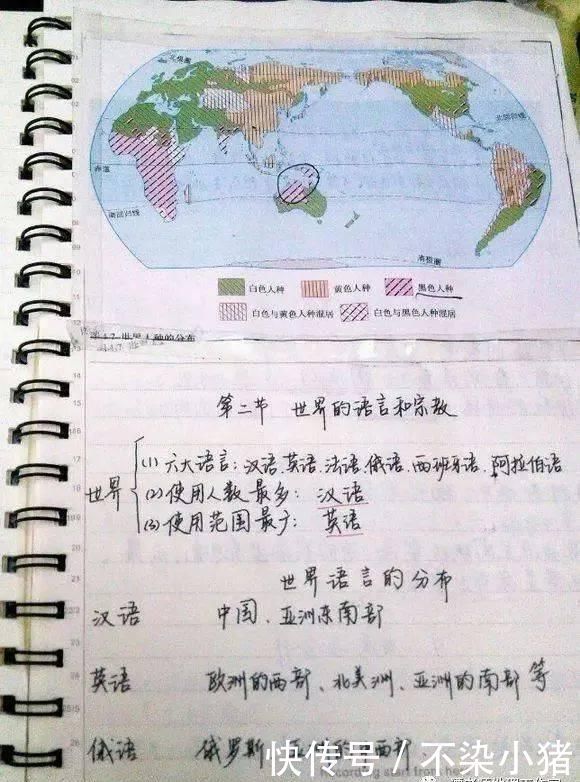 北极圈
北回归线
赤道
南回归线
南极圈
白色人种 黄色人种 黑色人种
白色与黄色人种混居 白色与黑色人种混居
图4.7 世界人种的分布
第二节 世界的语言和宗教
世界
(1) 六大语言：汉语、英语、法语、俄语、西班牙语、阿拉伯语
(2) 使用人数最多：汉语
(3) 使用范围最广：英语
世界语言的分布
汉语 中国、亚洲东南部
英语 欧洲的西部、北美洲、亚洲的南部等
俄语 俄罗斯
快传号 / 不染小猪